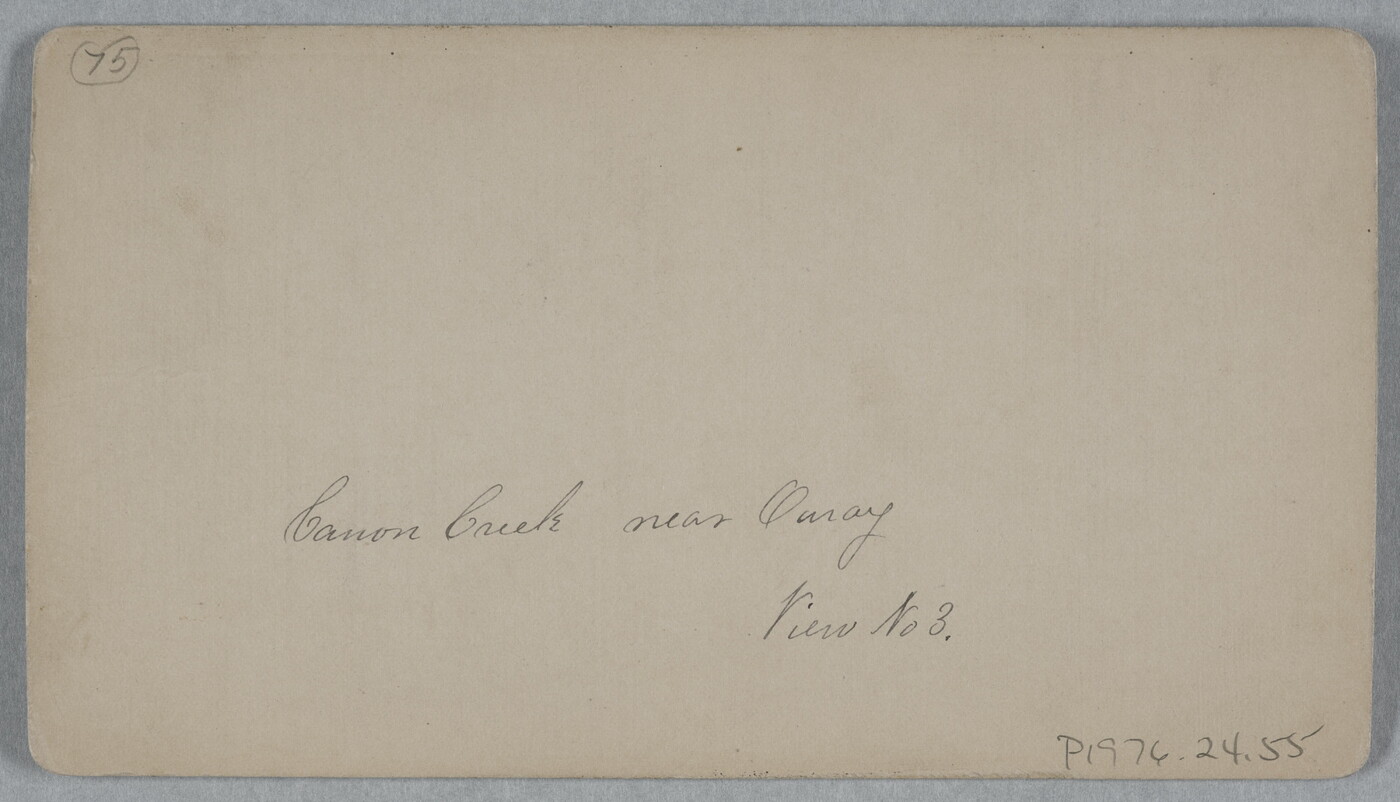 75
Canon Creek near Ouray
View No 3.
P1976.24.55